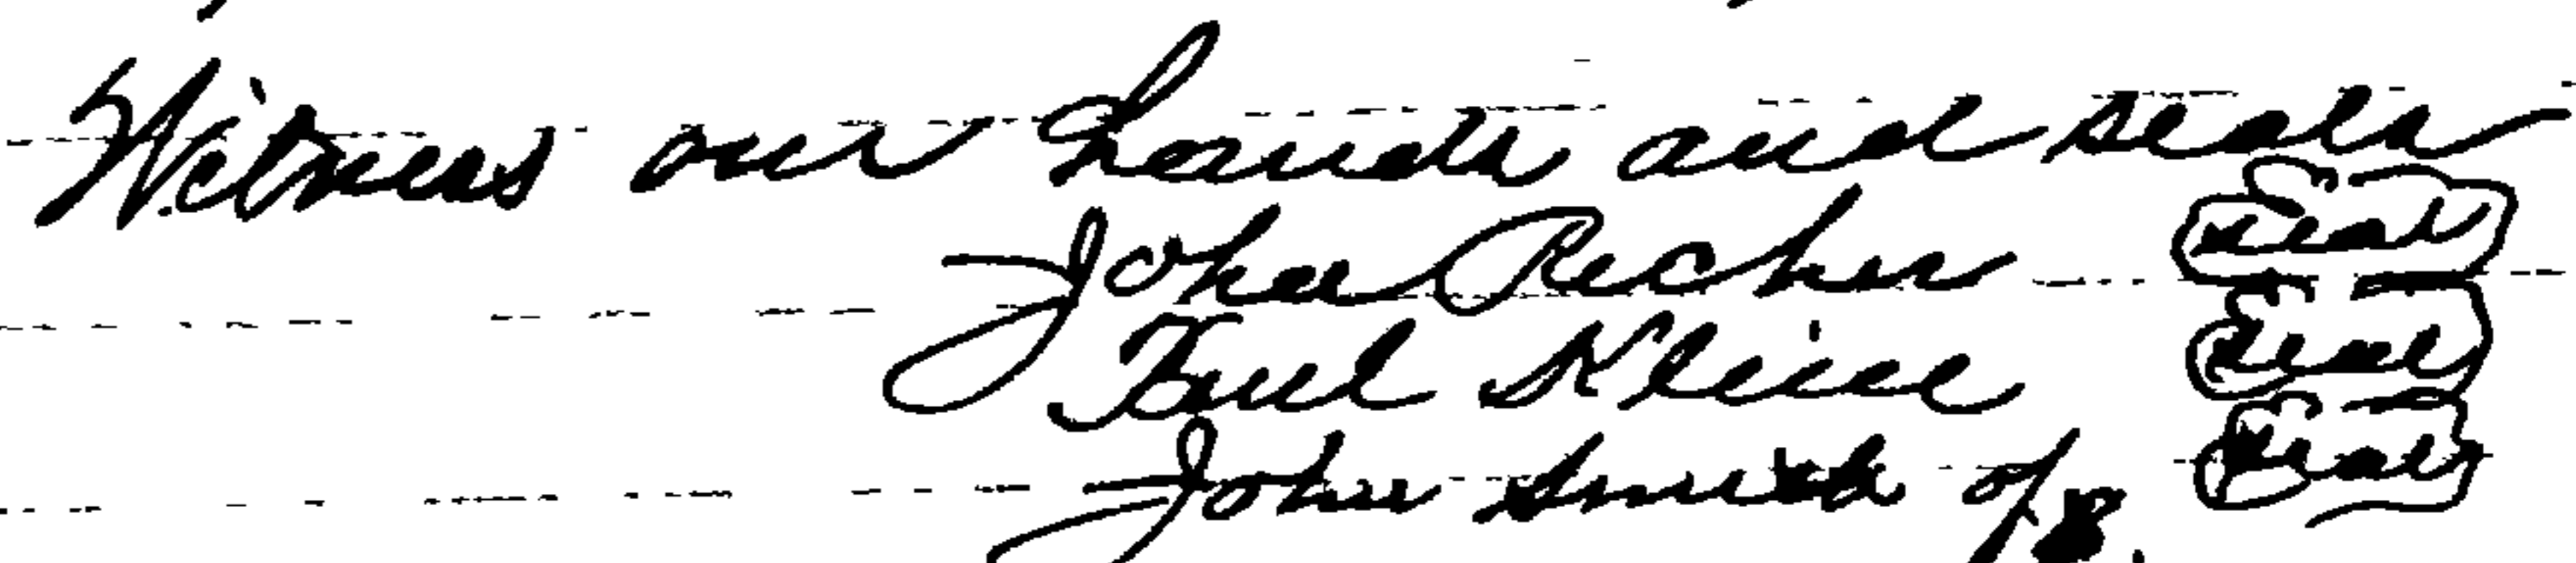 Witness our hands and seals
John Recher Seal
Paul Kline Seal
John Smith of Seal